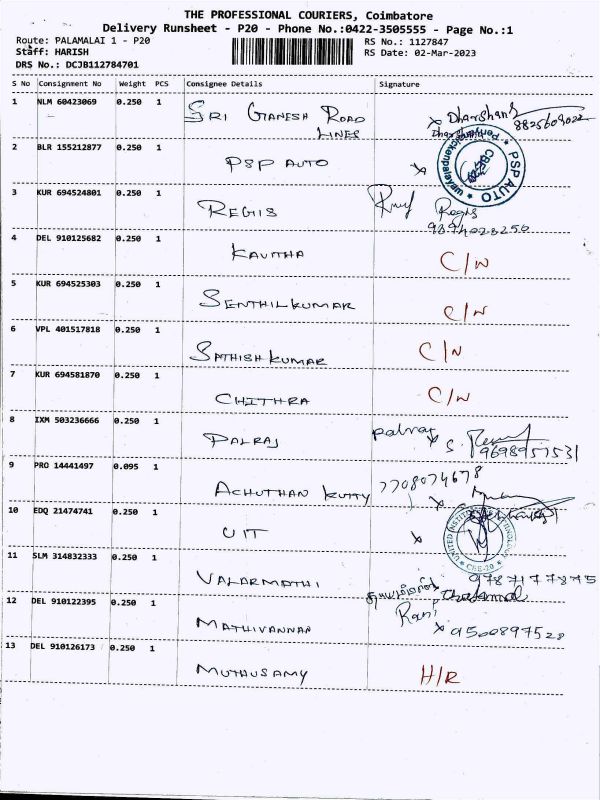 THE PROFESSIONAL COURIERS, Coimbatore
Delivery Runsheet - P20 - Phone No.:0422-3505555 - Page No.:1
Route: PALAMALAI 1 - P20
Staff: HARISH
DRS No.: DCJB112784701
RS No.: 1127847
RS Date: 02-Mar-2023
S No Consignment No Weight PCS Consignee Details Signature
1 NLM 60423069 0.250 1 SRI GANESH ROAD LINES x Dharshan
8825609022
2 BLR 155212877 0.250 1 PSP AUTO x
PSP AUTO * Periyanaickenpalayam * CBE-20
3 KUR 694524801 0.250 1 REGIS Regis
9894028250
4 DEL 910125682 0.250 1 KAVITHA C/N
5 KUR 694525303 0.250 1 SENTHILKUMAR C/N
6 VPL 401517818 0.250 1 SATHISH KUMAR C/N
7 KUR 694581870 0.250 1 CHITHRA C/N
8 IXM 503236666 0.250 1 PALRAJ palraj x S.
9698951531
9 PRO 14441497 0.095 1 ACHUTHAN KUTTY 7708074678 x
10 EDQ 21474741 0.250 1 UIT x
UNITED INSTITUTE OF TECHNOLOGY * CBE-20 *
11 SLM 314832333 0.250 1 VALARMATHI 9787177875
12 DEL 910122395 0.250 1 MATHIVANNAN Rani
x 9500897528
13 DEL 910126173 0.250 1 MUTHUSAMY H/R